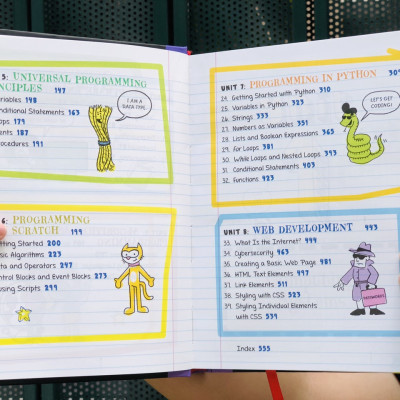 5: UNIVERSAL PROGRAMMING
NCIPLES 147
riables 148
nditional Statements 163
ops 179
ents 187
ocedures 191
I AM A
DATA TYPE.
6: PROGRAMMING
SCRATCH 199
tting Started 200
sic Algorithms 223
ta and Operators 247
ntrol Blocks and Event Blocks 273
using Scripts 299
UNIT 7: PROGRAMMING IN PYTHON 309
24. Getting Started with Python 310
25. Variables in Python 323
26. Strings 333
27. Numbers as Variables 351
28. Lists and Boolean Expressions 365
29. For Loops 381
30. While Loops and Nested Loops 393
31. Conditional Statements 403
32. Functions 423
LET'S GET
CODING!
UNIT 8: WEB DEVELOPMENT 443
33. What Is the Internet? 444
34. Cybersecurity 463
35. Creating a Basic Web Page 481
36. HTML Text Elements 497
37. Link Elements 511
38. Styling with CSS 523
39. Styling Individual Elements
with CSS 539
Index 555